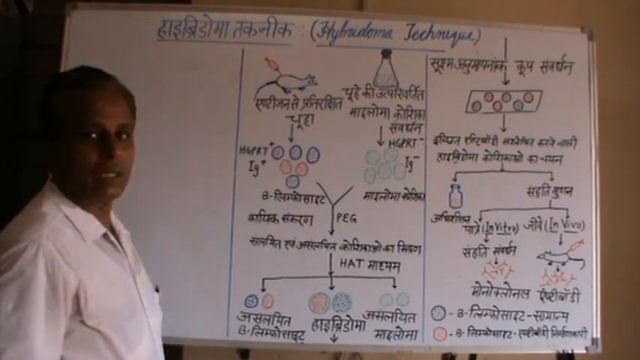 हाइब्रिडोमा तकनीक : (Hybridoma Technique)
एण्टीजन से प्रतिरक्षित
चूहा
चूहे की उत्परिवर्तित
माइलोमा कोशिका
संवर्धन
HGPRT+
Ig+
HGPRT-
Ig-
B-लिम्फोसाइट
माइलोमा कोशिका
कायिक संकरण
PEG
संलयित एवं असंलयित कोशिकाओं का मिश्रण
HAT माध्यम
असंलयित
B-लिम्फोसाइट
हाइब्रिडोमा
असंलयित
माइलोमा
सूक्ष्म अनुमापनांक कूप संवर्धन
इच्छित एण्टीबॉडी संश्लेषित करने वाली
हाइब्रिडोमा कोशिकाओं का चयन
संहति गुणन
पात्रे (In Vitro)
जीवे (In Vivo)
संहति संवर्धन
मोनोक्लोनल एण्टीबॉडी
- B-लिम्फोसाइट-सामान्य
- B-लिम्फोसाइट-एण्टीबॉडी